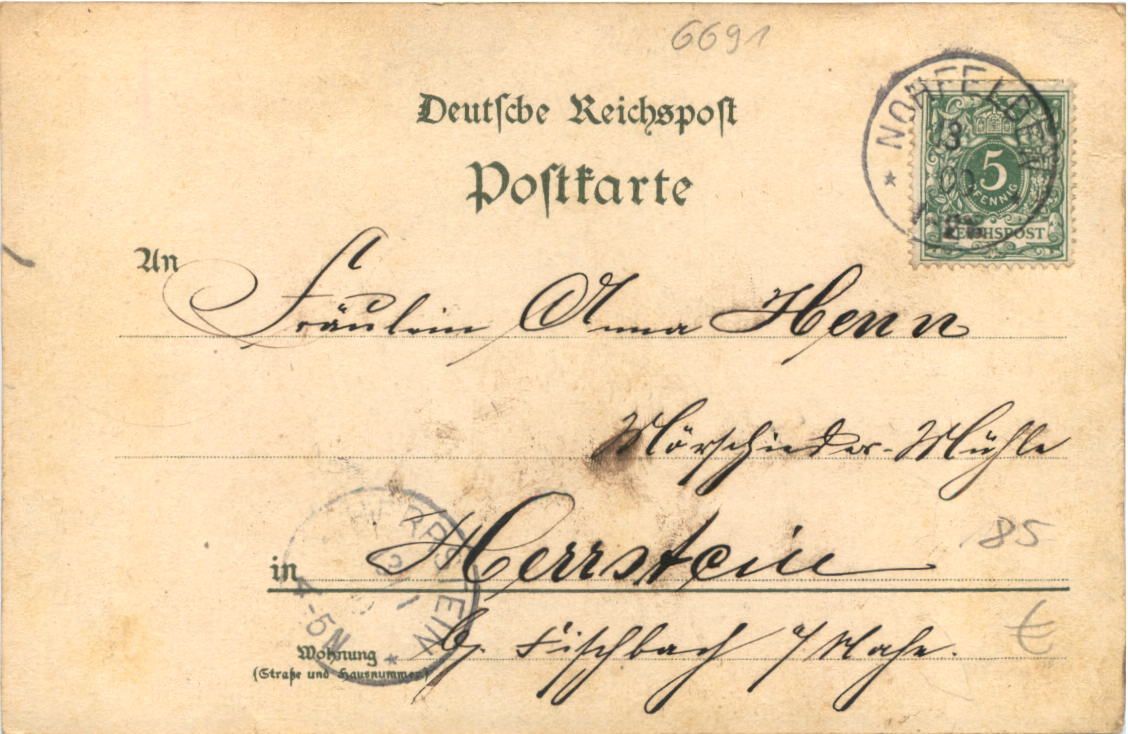 6691
Deutsche Reichspost
Postkarte
NOHFELDEN
13
00
5
PFENNIG
REICHSPOST
An
Fräulein Anna Henn
Mörschieder-Mühle
85
in Herrstein
€
HERRSTEIN
4-5N
b. Fischbach a/Nahe.
Wohnung
(Straße und Hausnummer)